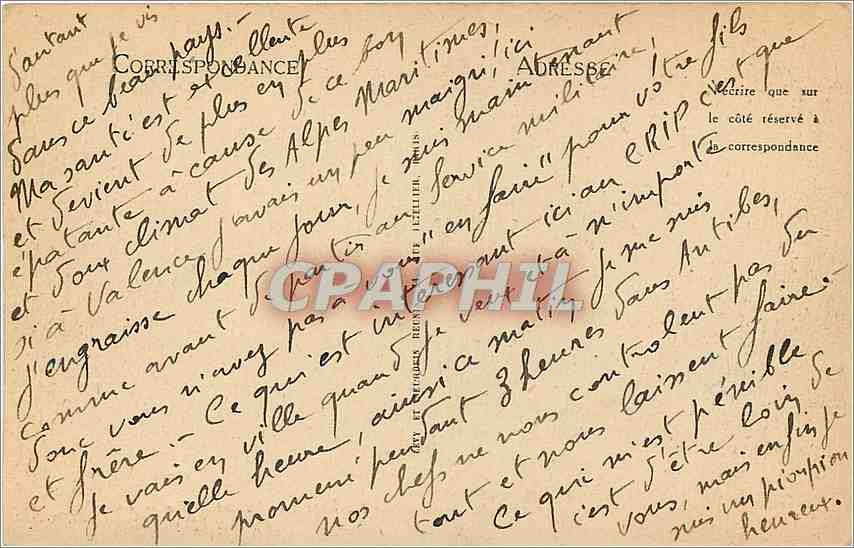 CORRESPONDANCE
ADRESSE
N'écrire que sur
le côté réservé à
la correspondance
LEVY ET NEURDEIN REUNIS LETELIER, PARIS
CPAPHIL
d'autant
plus que je vis
dans ce beau pays. -
Ma santé est excellente
et devient de plus en plus
épatante à cause de ce bon
et doux climat des Alpes Maritimes,
si à Valence j'avais un peu maigri, ici
j'engraisse chaque jour, je suis maintenant
comme avant de partir au service militaire,
donc vous n'avez pas à vous "en faire" pour votre fils
et frère. - Ce qui est intéressant ici au CRIP c'est que
je vais en ville quand je veux et à n'importe
quelle heure, ainsi ce matin je me suis
promené pendant 3 heures dans Antibes,
nos chefs ne nous controlent pas du
tout et nous laissent faire. -
Ce qui m'est pénible
c'est d'être loin de
vous, mais enfin je
suis un pioupiou
heureux.